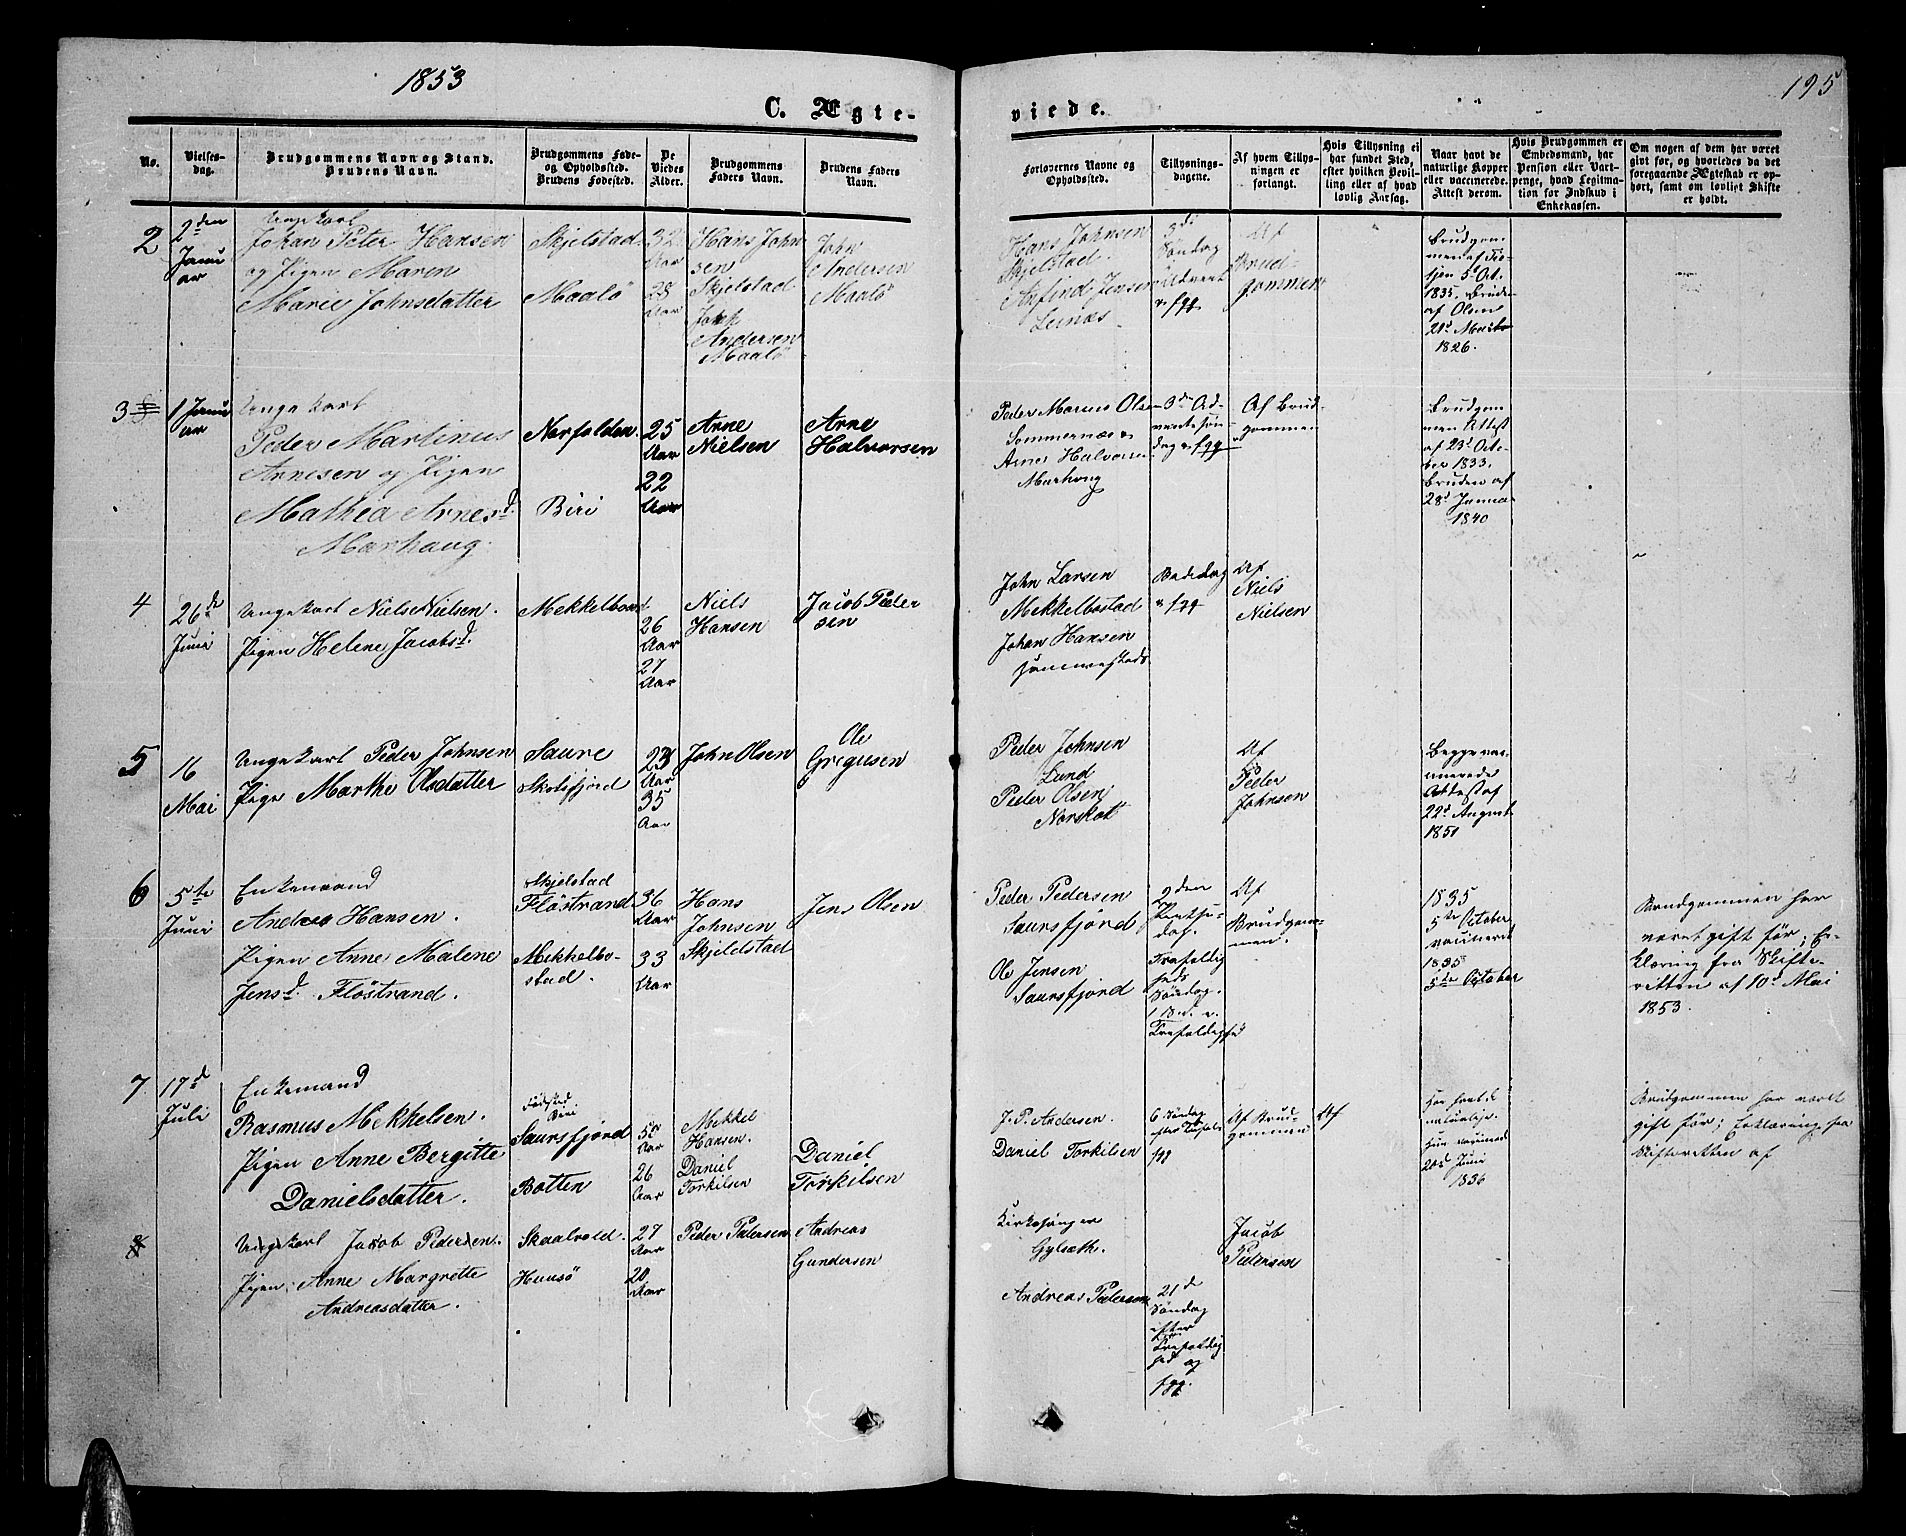 1853
195
C. Ægte-
viede.
No.
Vielses-
dag.
Brudgommens Navn og Stand.
Brudens Navn.
Brudgommens Føde-
og Opholdssted.
Brudens Fødested.
De
Viedes
Alder.
Brudgommens
Faders Navn.
Brudens Faders
Navn.
Forlovernes Navne og
Opholdssted.
Tillysnings-
dagene.
Af hvem Tillys-
ningen er
forlangt.
Hvis Tillysning ei
har fundet Sted,
efter hvilken Bevil-
ling eller af hvad
lovlig Aarsag.
Naar havt de
naturlige Kopper
eller vaccinerede.
Attest derom.
Hvis Brudgommen er
Embedsmand, har
Pension eller Vart-
penge, hvad Legitima-
tion for Indskud i
Enkekassen.
Om nogen af dem har været
givt før, og hvorledes da det
foregaaende Ægteskab er op-
hørt, samt om lovligt Skifte
er holdt.
2
2den
Janu
ar
Ungekarl
Johan Peter Hansen
og Pigen Maren
Marie Johnsdatter
Skjelstad
Maalö
32
Aar
28
Aar
Hans John
sen
Skjelstad
John
Andersen
Maalö
John
Andersen
Maalö
Hans Johnsen
Skjelstad.
Arfind Jensen
Leinæs
3de
Söndag
Advent
o fgg
Af
Brud-
gommen
Brudgom-
men af
5te Oct.
1835. Bruden
af Olsen
21d Marts
1826.
3
1 Janu
ar
Ungekarl
Peder Martinus
Arnesen og Pigen
Mathea Arnesd.
Marhaug.
Norfolden
Biri
25
Aar
22
Aar
Arne
Nielsen
Arne
Halvorsen
Peder Marius Olsen
Sommernæs o
Arne Halvorsen
Marhaug
3de Ad-
ventssön-
dag o fgg
Af Brud-
gommen
Brudgom
men Attest
af 23d Octo-
ber 1833.
Bruden af
28d Janua
1840
4
26de
Juni
Ungekarl Niels Nielsen.
Pigen Helene Jacobsd.
Mekkelbost
26
Aar
27
Aar
Niels
Hansen
Jacob Peder
sen
John Larsen
Mekkelbostad
Johan Hansen
Bededag
o fgg
Af
Niels
Nielsen
5
16
Mai
Ungekarl Peder Johnsen
Pige Marthe Olsdatter
Saure
Skotsfjord
23
Aar
35
Aar
John Olsen
Ole
Gregusen
Peder Johnsen
Lund
Peder Olsen
Norskot
Af
Peder
Johnsen
Begge vac-
cinerede
Attest af
22d August
1851
6
5te
Juni
Enkemand
Andreas Hansen.
Pigen Anne Malene
Jensd. Flöstrand.
Skjelstad
Flöstrand
Mekkelbo-
stad.
36
Aar
33
Aar
Hans
Johnsen
Skjeldstad
Jens Olsen
Peder Pedersen
Saursfjord
Ole Jensen
Saursfjord
2den
Pintse-
dag.
Trefoldig
heds
Söndag.
1 S. e.
Trefoldighed
Af
Brudgom-
men.
1835
5te October
vaccineret
1835
5te October
Brudgommen har
været gift før; Er-
klæring fra Skifte-
retten af 10d Mai
1853.
7
17d
Juli
Enkemand
Rasmus Mekkelsen.
Pigen Anne Bergitte
Danielsdatter.
Födested
Biri
Saursfjord
Botten
50
Aar
26
Aar
Mekkel
Hansen.
Daniel
Torkilsen
Daniel
Torkilsen
J. P. Andersen.
Daniel Torkilsen
6 Söndag
efter Trefold
fgg
Af Brud-
gommen
Af
Han havt de
naturlige.
Hun vaccineret
20d Juni
1836
Brudgommen har været
gift før; Erklæring fra
Skifteretten af
8
Ungekarl Jacob Pedersen.
Pigen Anne Margrette
Andreasdatter.
Skaalvold.
Hunsö
27
Aar
20
Aar
Peder Pedersen
Andreas
Gundersen
Kirkesanger
Gylseth.
Andreas Pedersen
21d
Söndag
efter
Trefoldig
hed og
fgg.
Jacob
Pedersen